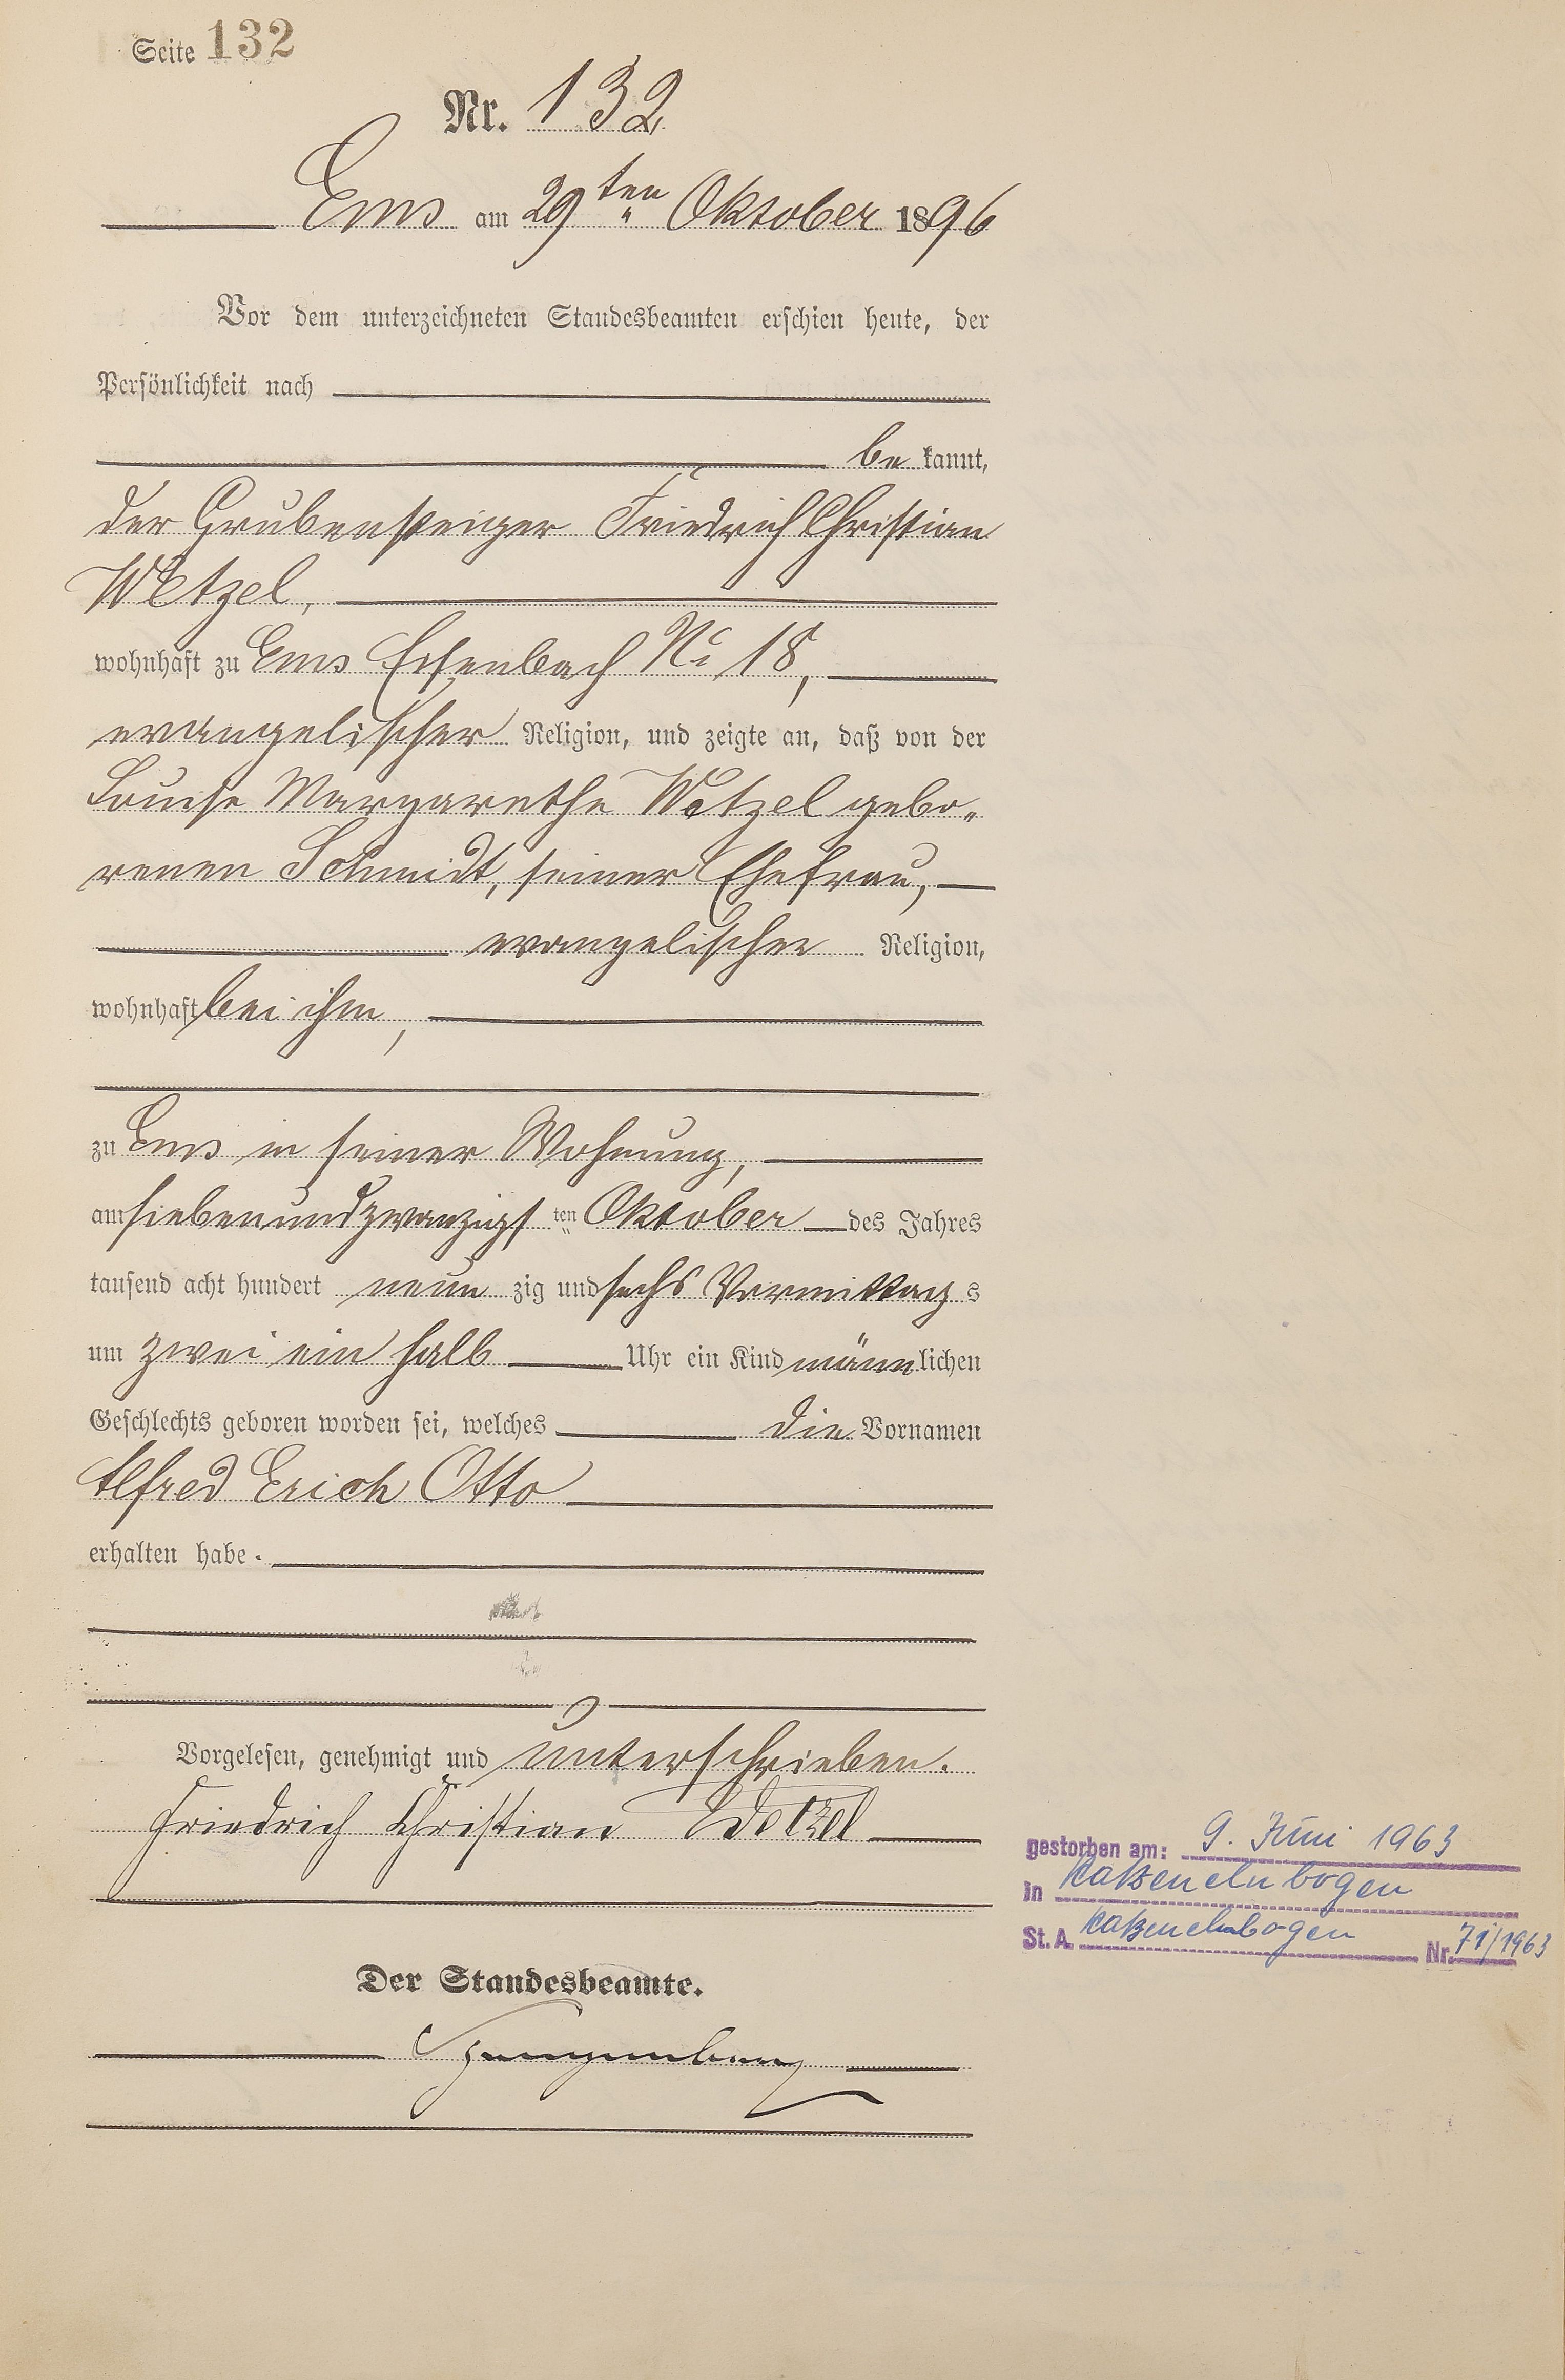 Seite 132
Nr. 132
Ems am 29ten Oktober 1896
Vor dem unterzeichneten Standesbeamten erschien heute, der
Persönlichkeit nach
be kannt,
der Grubensteiger Friedrich Christian
Wetzel,
wohnhaft zu Ems Eisenbach No 18,
evangelischer Religion, und zeigte an, daß von der
Louise Margarethe Wetzel gebo„
renen Schmidt, seiner Ehefrau,
evangelischer Religion,
wohnhaft bei ihm,
zu Ems in seiner Wohnung,
am siebenundzwanzigsten Oktober des Jahres
tausend acht hundert neun zig und sechs Vormittags
um zwei ein halb Uhr ein Kind männlichen
Geschlechts geboren worden sei, welches die Vornamen
Alfred Erich Otto
erhalten habe.
Vorgelesen, genehmigt und unterschrieben.
Friedrich Christian Wetzel
gestorben am: 9. Juni 1963
in Katzenelnbogen
St. A. Katzenelnbogen Nr. 71/1963
Der Standesbeamte.